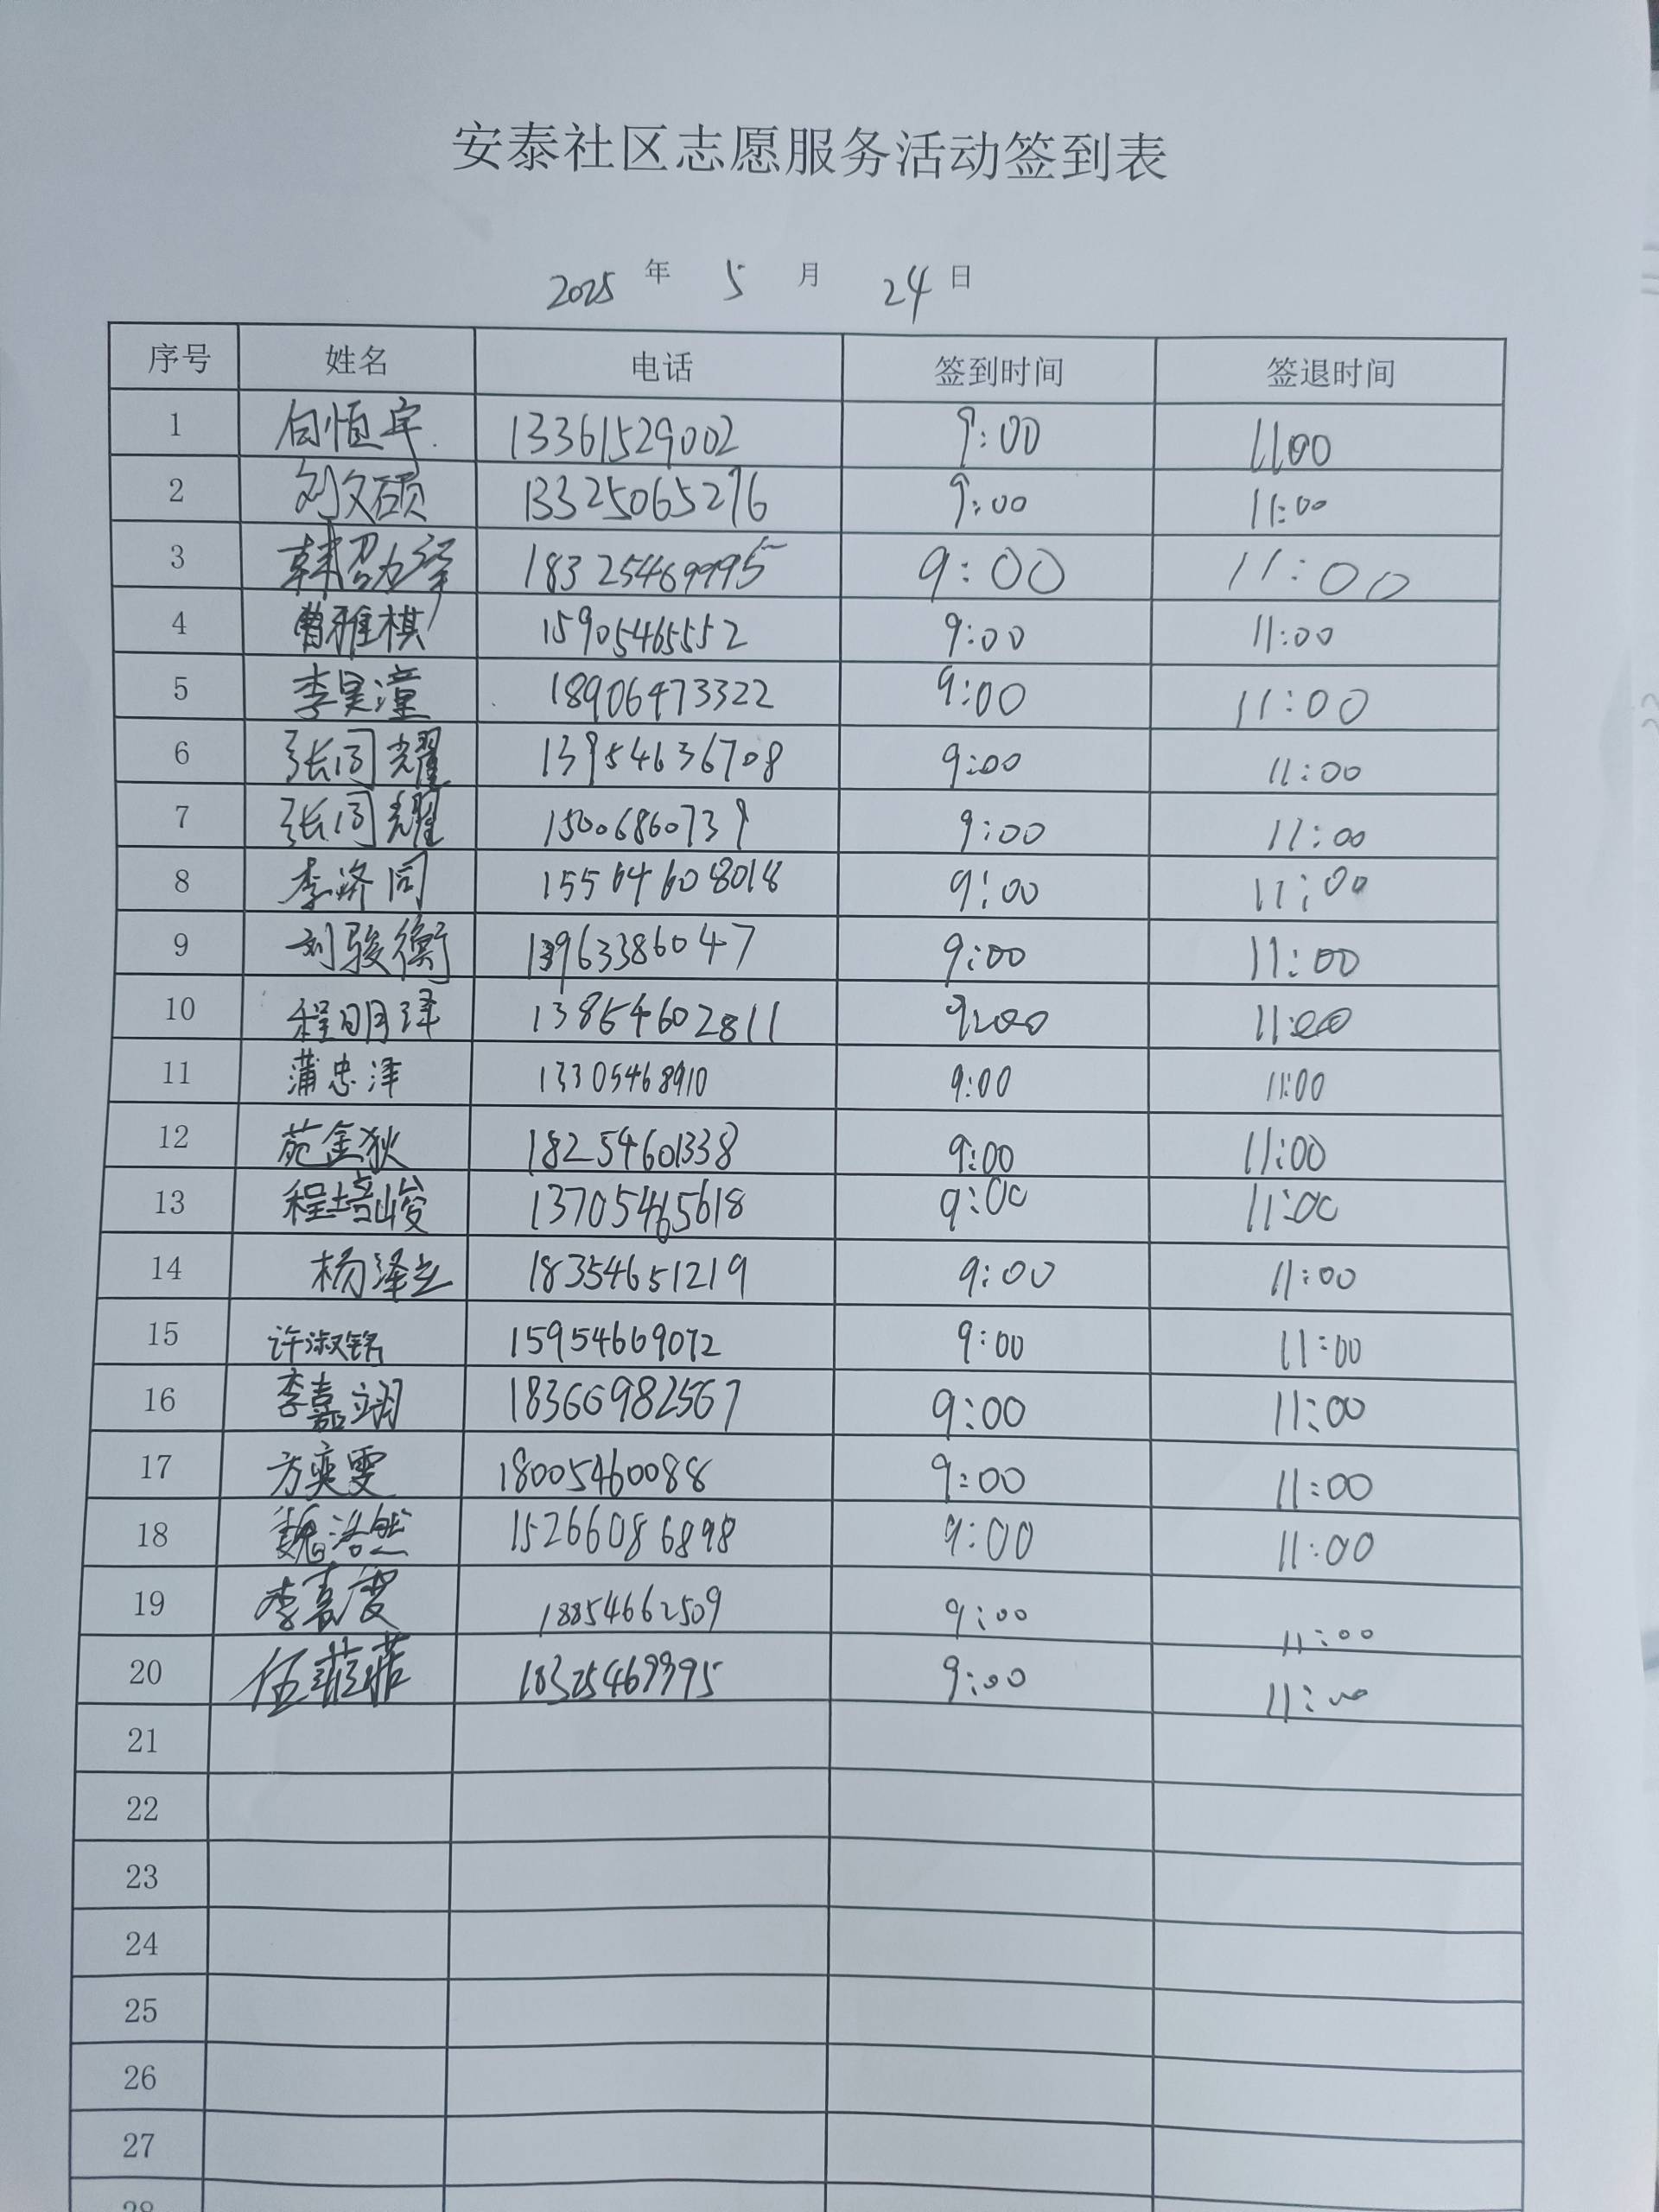 安泰社区志愿服务活动签到表
2025 年 5 月 24 日
序号 姓名 电话 签到时间 签退时间
1 白恒宇 13361529002 9:00 1100
2 刘文硕 13325065276 9:00 11:00
3 韩召力泽 18325469995 9:00 11:00
4 曹雅棋 15905465552 9:00 11:00
5 李昊潼 18906473322 9:00 11:00
6 张同耀 13954636708 9:00 11:00
7 张同耀 15006860739 9:00 11:00
8 李济同 15564608018 9:00 11:00
9 刘骏衡 13963386047 9:00 11:00
10 程明泽 13864602811 9:00 11:00
11 蒲忠泽 13305468910 9:00 11:00
12 苑金狄 18254601338 9:00 11:00
13 程培峻 13705465618 9:00 11:00
14 杨泽立 18354651219 9:00 11:00
15 许淑铭 15954669072 9:00 11:00
16 李嘉翊 18366982567 9:00 11:00
17 方奕雯 18005460088 9:00 11:00
18 魏浩然 15266086898 9:00 11:00
19 李嘉雯 18854662509 9:00 11:00
20 伍菲菲 18325469995 9:00 11:00
21
22
23
24
25
26
27
28